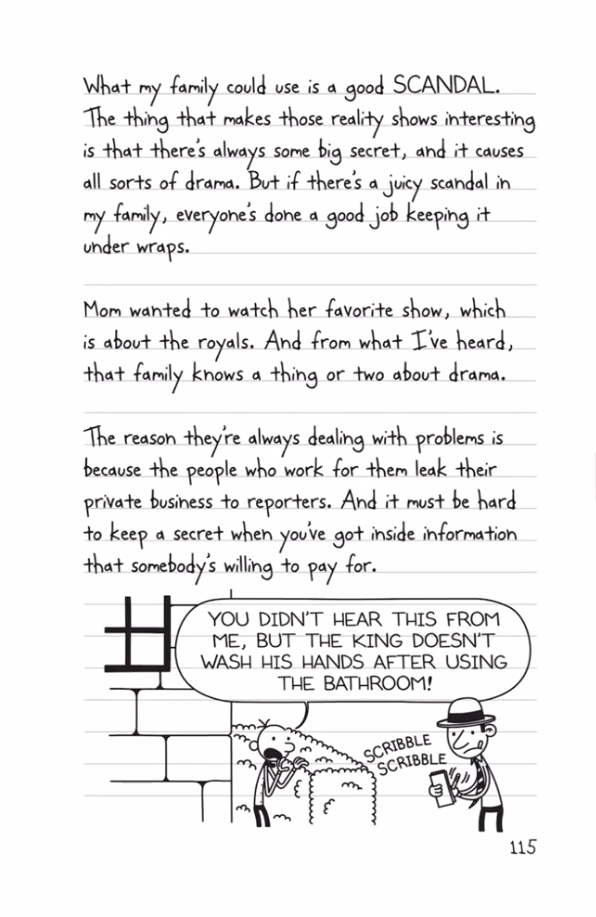 What my family could use is a good SCANDAL.
The thing that makes those reality shows interesting
is that there's always some big secret, and it causes
all sorts of drama. But if there's a juicy scandal in
my family, everyone's done a good job keeping it
under wraps.
Mom wanted to watch her favorite show, which
is about the royals. And from what I've heard,
that family knows a thing or two about drama.
The reason they're always dealing with problems is
because the people who work for them leak their
private business to reporters. And it must be hard
to keep a secret when you've got inside information
that somebody's willing to pay for.
YOU DIDN'T HEAR THIS FROM
ME, BUT THE KING DOESN'T
WASH HIS HANDS AFTER USING
THE BATHROOM!
SCRIBBLE
SCRIBBLE
115